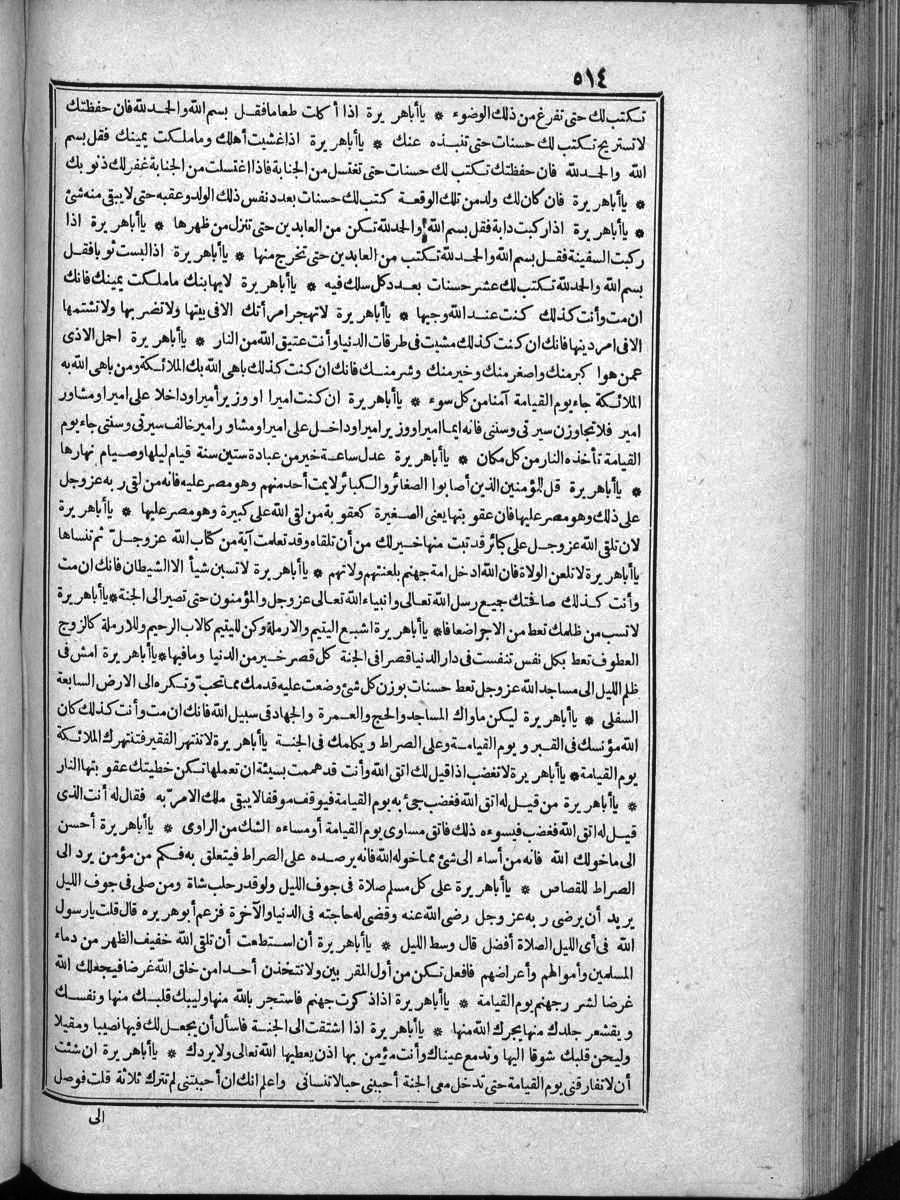 ٥١٤
تكتب لك حتى تفرغ من ذلك الوضوء * ياأباهريرة اذا أكات طعاما فقل بسم الله والحمدلله فان حفظتك
لاتستريح تكتب لك حسنات حتى تنبذه عنك * ياأباهريرة اذاغشيت أهلك وماملكت يمينك فقل بسم
الله والحمدلله فان حفظتك تكتب لك حسنات حتى تغتسل من الجنابة فاذا اغتسلت من الجنابة غفرلك ذنوبك
* ياأباهريرة فان كان لك ولد من تلك الوقعة كتب لك حسنات بعدد نفس ذلك الولد وعقبه حتى لايبقى منه شئ
* ياأباهريرة اذا ركبت دابة فقل بسم الله والحمدلله تكن من العابدين حتى تنزل من ظهرها * ياأباهريرة اذا
ركبت السفينة فقل بسم الله والحمدلله تكتب من العابدين حتى تخرج منها * ياأباهريرة اذا لبست ثوبا فقل
بسم الله والحمدلله تكتب لك عشر حسنات بعدد كل سلك فيه * ياأباهريرة لايهابنك ماملكت يمينك فانك
ان مت وأنت كذلك كنت عند الله وجيها * ياأباهريرة لاتهجر امرأتك الافى بيتها ولاتضربها ولاتشتمها
الافى امر دينها فانك ان كنت كذلك مشيت فى طرقات الدنيا وأنت عتيق الله من النار * ياأباهريرة احمل الاذى
عمن هو اكبر منك واصغر منك وخير منك وشر منك فانك ان كنت كذلك باهى الله بك الملائكة ومن باهى الله به
الملائكة جاء يوم القيامة آمنا من كل سوء * ياأباهريرة ان كنت اميرا او وزير أمير اوداخلا على امير اومشاور
امير فلاتجاوزن سيرتى وسنتى فانه ايما امير او وزير امير اوداخل على امير اومشاور امير خالف سيرتى وسنتى جاء يوم
القيامة تأخذه النار من كل مكان * ياأباهريرة عدل ساعة خير من عبادة ستين سنة قيام ليلها وصيام نهارها
* ياأباهريرة قل للمؤمنين الذين أصابوا الصغائر والكبائر لايمت أحد منهم وهو مصر عليه فانه من لقى ربه عز وجل
على ذلك وهو مصر عليها فان عقوبتها يعنى الصغيرة كعقوبة من لقى الله على كبيرة وهو مصر عليها * ياأباهريرة
لان تلقى الله عز وجل على كبائر قد تبت منها خير لك من أن تلقاه وقد تعلمت آية من كتاب الله عز وجل ثم تنساها
ياأباهريرة لاتلعن الولاة فان الله ادخل امة جهنم بلعنتهم ولاتهم * ياأباهريرة لاتسبن شيأ الا الشيطان فانك ان مت
وأنت كذلك صافحتك جميع رسل الله تعالى وانبياء الله تعالى عز وجل والمؤمنون حتى تصير الى الجنة * ياأباهريرة
لاتسب من ظلمك تعط من الاجر اضعافا * ياأباهريرة اشبع اليتيم والارملة وكن لليتيم كالاب الرحيم وللارملة كالزوج
العطوف تعط بكل نفس تنفست فى دار الدنيا قصرا فى الجنة كل قصر خير من الدنيا ومافيها * ياأباهريرة امش فى
ظلم الليل الى مساجد الله عز وجل تعط حسنات بوزن كل شئ وضعت عليه قدمك مماتحب وتكره الى الارض السابعة
السفلى * ياأباهريرة ليكن مأواك المساجد والحج والعمرة والجهاد فى سبيل الله فانك ان مت وأنت كذلك كان
الله مؤنسك فى القبر ويوم القيامة وعلى الصراط ويكلمك فى الجنة ياأباهريرة لاتنتهر الفقير فتنتهرك الملائكة
يوم القيامة * ياأباهريرة لاتغضب اذا قيل لك اتق الله وأنت قد هممت بسيئة ان تعملها تكن خطيتك عقوبتها النار
* ياأباهريرة من قيل له اتق الله فغضب جئ به يوم القيامة فيوقف موقفا لايبقى ملك الامر به فقال له أنت الذى
قيل له اتق الله فغضب فيسوءه ذلك فاتق مساوى يوم القيامة أومساءه الشك من الراوى * ياأباهريرة أحسن
الى ماخولك الله فانه من أساء الى شئ مماخوله الله فانه يرصده على الصراط فيتعلق به فكم من مؤمن يرد الى
الصراط للقصاص * ياأباهريرة على كل مسلم صلاة فى جوف الليل ولو قدر حلب شاة ومن صلى فى جوف الليل
يريد أن يرضى ربه عز وجل رضى الله عنه وقضى له حاجته فى الدنيا والآخرة فزعم أبوهريره قال قلت يارسول
الله فى أى الليل الصلاة أفضل قال وسط الليل * ياأباهريرة أن استطعت أن تلقى الله خفيف الظهر من دماء
المسلمين وأموالهم وأعراضهم فافعل تكن من أول المقربين ولاتتخذن أحدا من خلق الله غرضا فيجعلك الله
غرضا لشرر جهنم يوم القيامة * ياأباهريرة اذا ذكرت جهنم فاستجر بالله منها وليبك قلبك منها ونفسك
ويقشعر جلدك منها يجرك الله منها * ياأباهريرة اذا اشتقت الى الجنة فاسأل أن يجعل لك فيها نصيبا ومقيلا
وليحن قلبك شوقا اليها وتدمع عيناك وأنت مؤمن بها اذن يعطيها الله تعالى ولايردك * ياأباهريرة ان شئت
أن لاتفارقنى يوم القيامة حتى تدخل معى الجنة أحببنى حبا لاتنسانى واعلم انك ان أحببتنى لم تترك ثلاثة قلت فوصل
الى